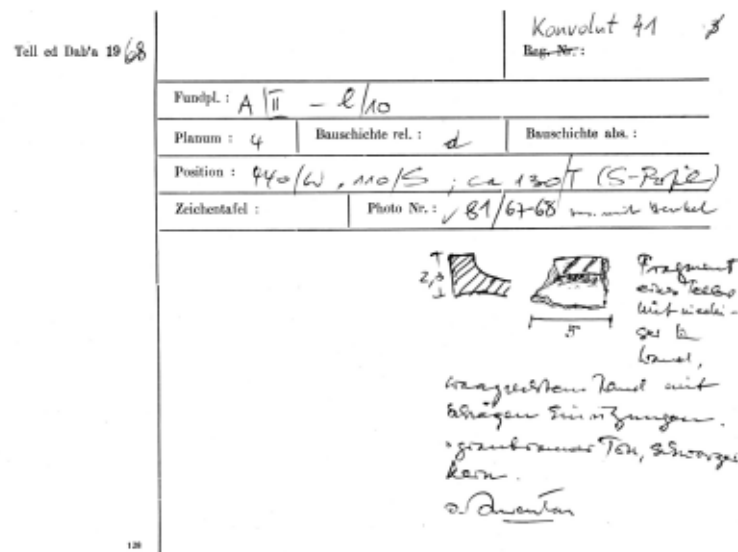 Konvolut 41
Tell ed Dab'a 1968
Reg. Nr.:
Fundpl.: A/II - l/10
Planum: 4
Bauschichte rel.: d
Bauschichte abs.:
Position: 440/W, 110/S; ca 130/T (S-Profil)
Zeichentafel:
Photo Nr.: 81/67-68 mit Henkel
2,3
5
Fragment
eines Tellers
mit niedri-
ger
waagrechtem Rand mit
schrägen Einritzungen.
graubrauner Ton, schwarzer
Kern.
128